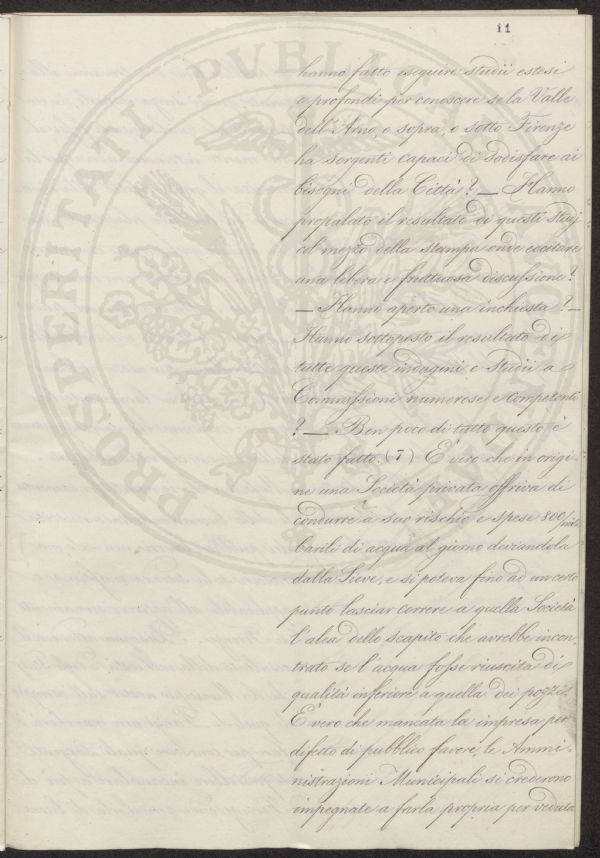 11
hanno fatto eseguire studii estesi
e profondi per conoscere se la Valle
dell'Arno, o sopra, o sotto Firenze
ha sorgenti capaci di sodisfare ai
bisogni della Città? — Hanno
propalato il resultato di questi Studj
col mezzo della stampa onde eccitare
una libera e fruttuosa discussione?
— Hanno aperto una inchiesta? —
Hanno sottoposto il resultato di
tutte queste indagini e Studii a
Commissioni numerose e competenti
? — Ben poco di tutto questo è
stato fatto. (7) È vero che in origi-
ne una Società privata offriva di
condurre a suo rischio e spese 800/mila
barili di acqua al giorno deviandola
dalla Sieve, e si poteva fino ad un certo
punto lasciar correre a quella Società
l'alea dello scapito che avrebbe incon-
trato se l'acqua fosse riuscita di
qualità inferiore a quella dei pozzi.
È vero che mancata la impresa per
difetto di pubblico favore, le Ammi-
nistrazioni Municipali si crederono
impegnate a farla propria per veduta
PROSPERITATI PVBLI